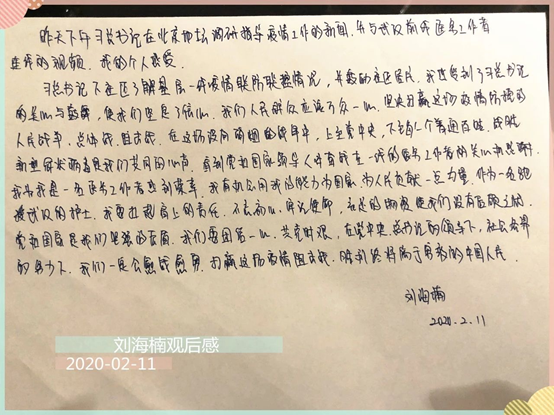 昨天下午习总书记在北京地坛调研指导疫情工作的新闻,并与武汉前线医务工作者
连线的视频,我的个人感受。
习总书记下社区了解基层一线疫情联防联控情况,慰问社区居民,我感受到了习总书记
的关心与鼓舞,使我们坚定了信心。我们人民群众应该万众一心,坚决打赢这场疫情防控的
人民战争、总体战、阻击战。在这场没有硝烟的战争中,上至党中央,下至每一个普通百姓,战胜
新型冠状病毒是我们共同的心声,看到党和国家领导人对奋战在一线的医务工作者的关心和慰问,
我为我是一名医务工作者感到荣幸,我有机会用我的能力为国家、为人民贡献一点力量。作为一名驰
援武汉的护士,我要担起肩上的责任,不忘初心、牢记使命,
党和国家是我们坚强的后盾,我们要团结一心,共克时艰,在党中央总书记的领导下,社会各界
的努力下,我们一定会愈战愈勇,打赢这场疫情阻击战。胜利终将属于勇敢的中国人民。
刘海楠
2020.2.11
刘海楠观后感
2020-02-11